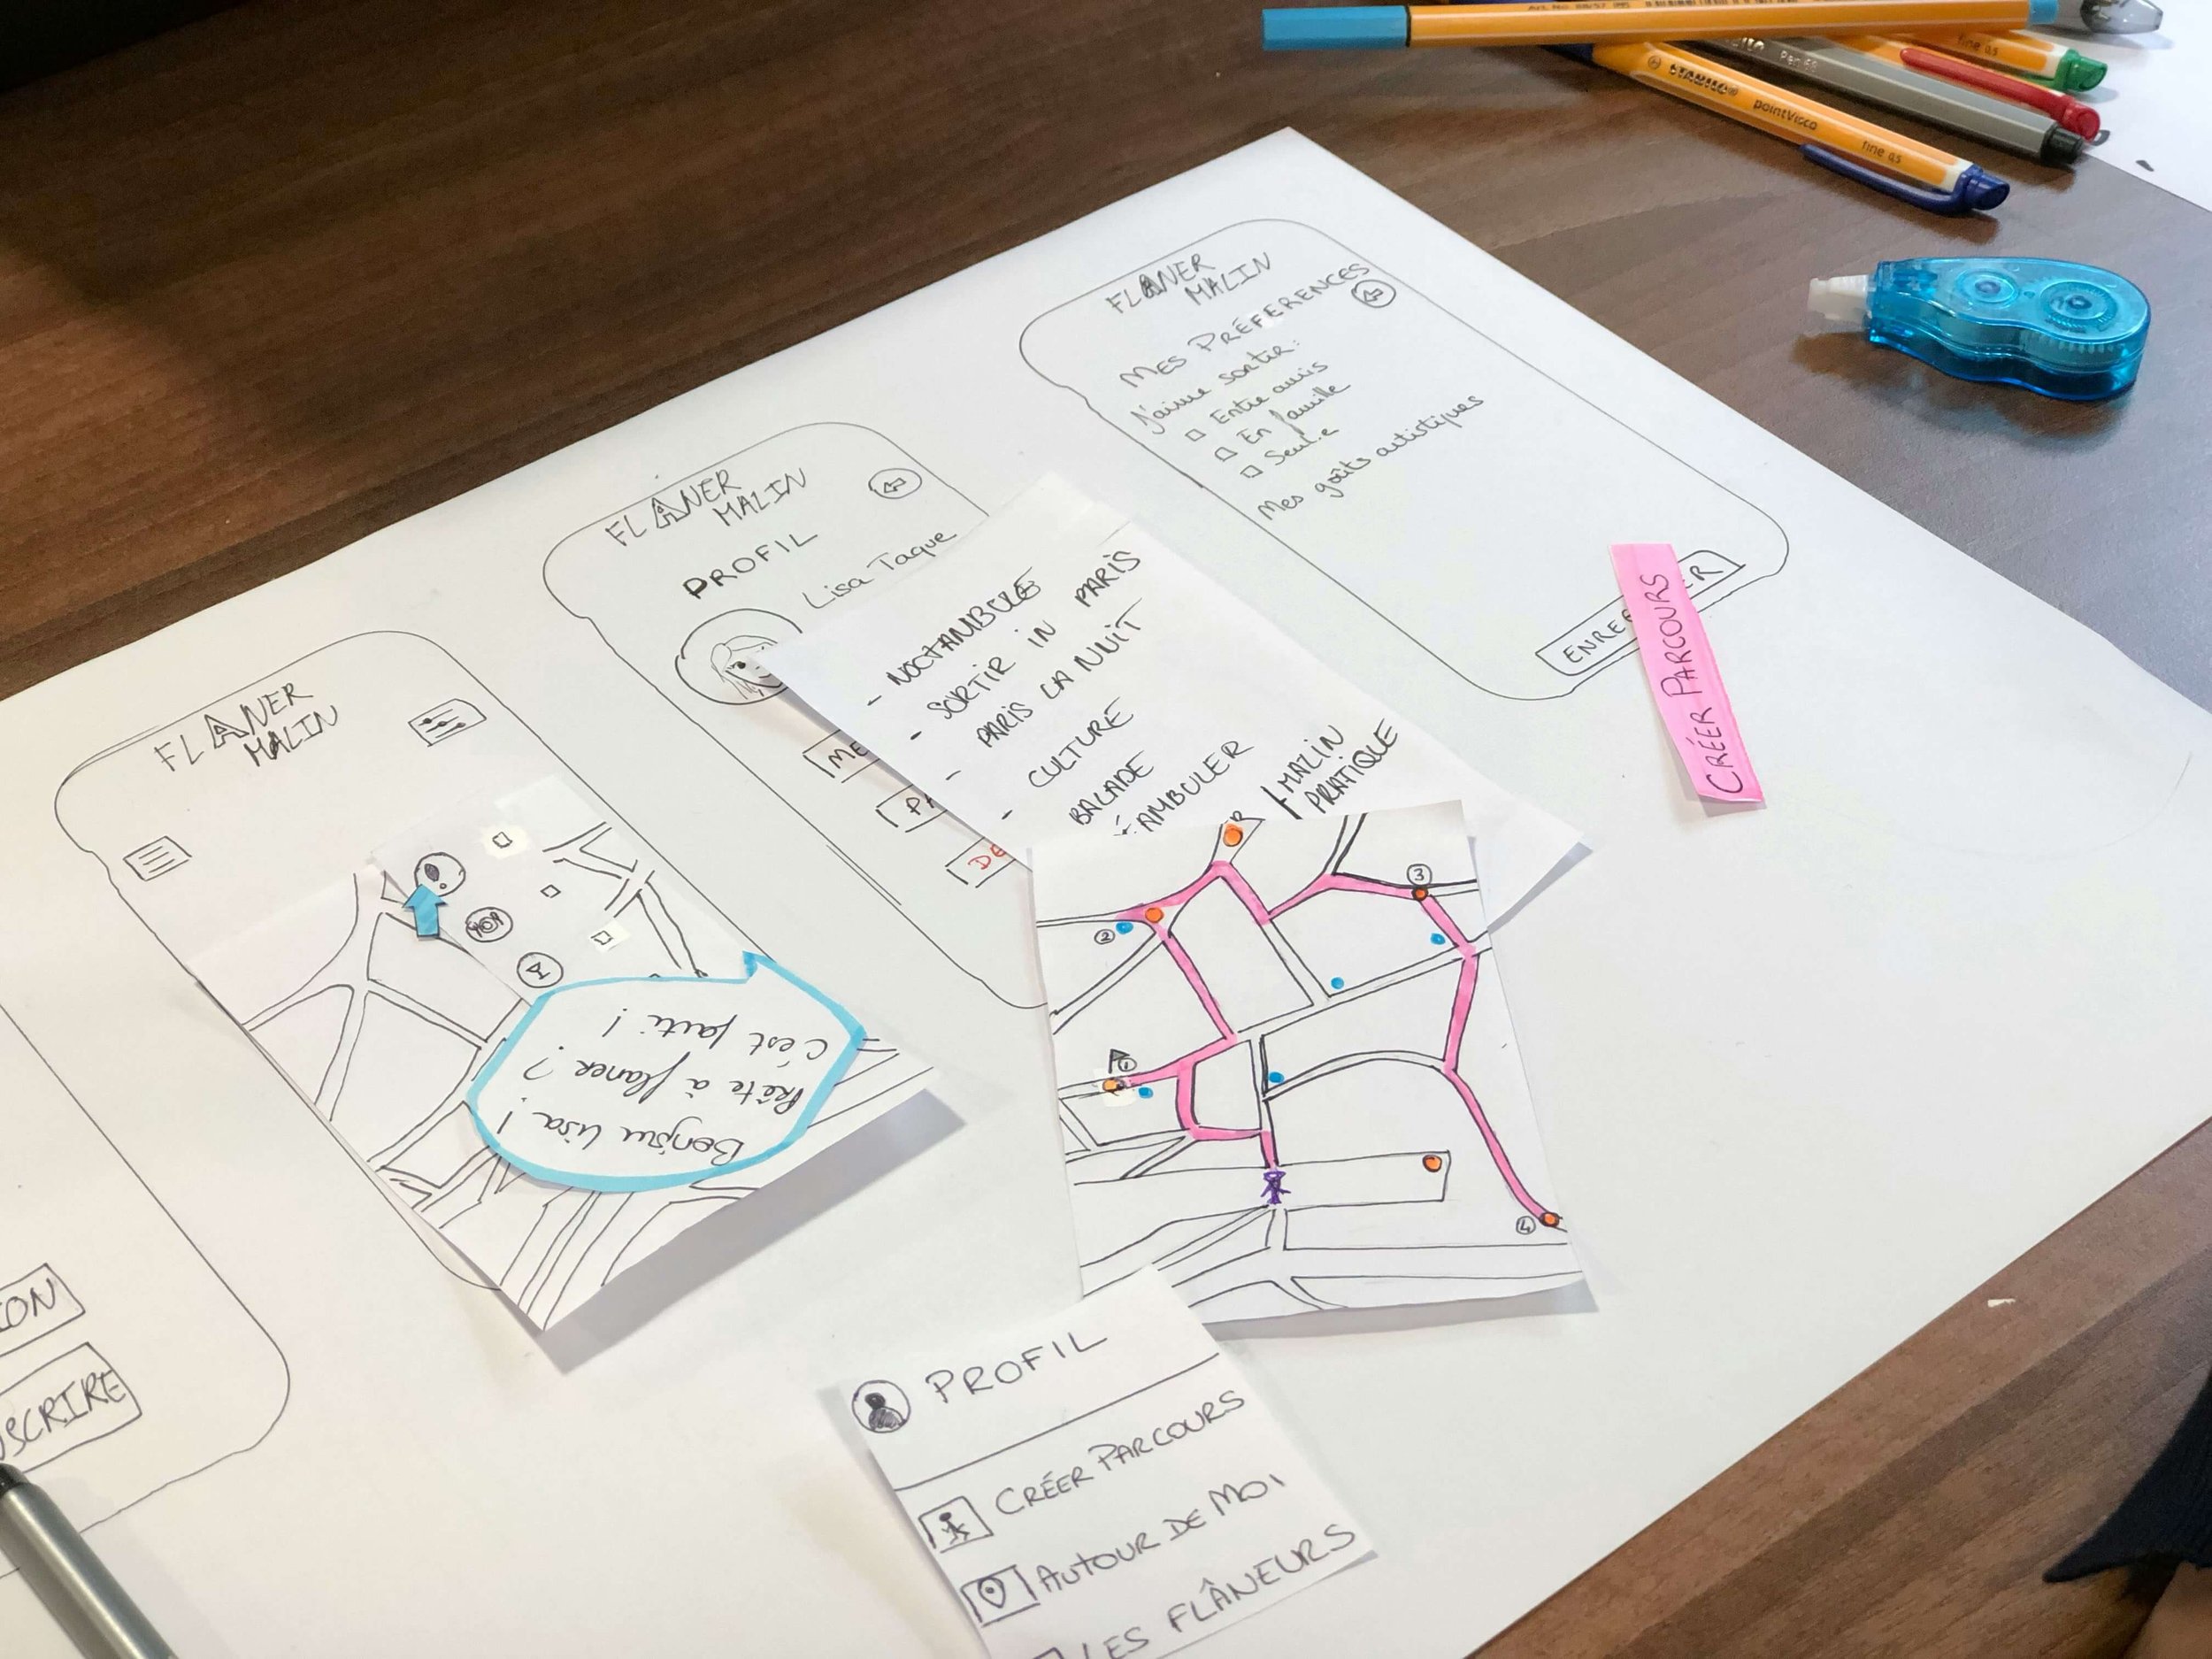 FLANER
MALIN
MES PRÉFERENCES
J'aime sortir:
Entre amis
En famille
Seul.e
Mes goûts artistiques
CRÉER PARCOURS
FLANER
MALIN
PROFIL
Lisa Taque
ME
PA
DE
- NOCTAMBULE
- SORTIR IN PARIS
- PARIS LA NUIT
- CULTURE
BALADE
AMBULER
MALIN
PRATIQUE
FLANER
MALIN
Bonjour Lisa !
Prête à flaner ?
C'est parti !
3
2
1
4
A
ION
SCRIRE
PROFIL
CRÉER PARCOURS
AUTOUR DE MOI
LES FLÂNEURS
STABILO
pointVisco
fine 0.5
fine 0.5
Pen 68